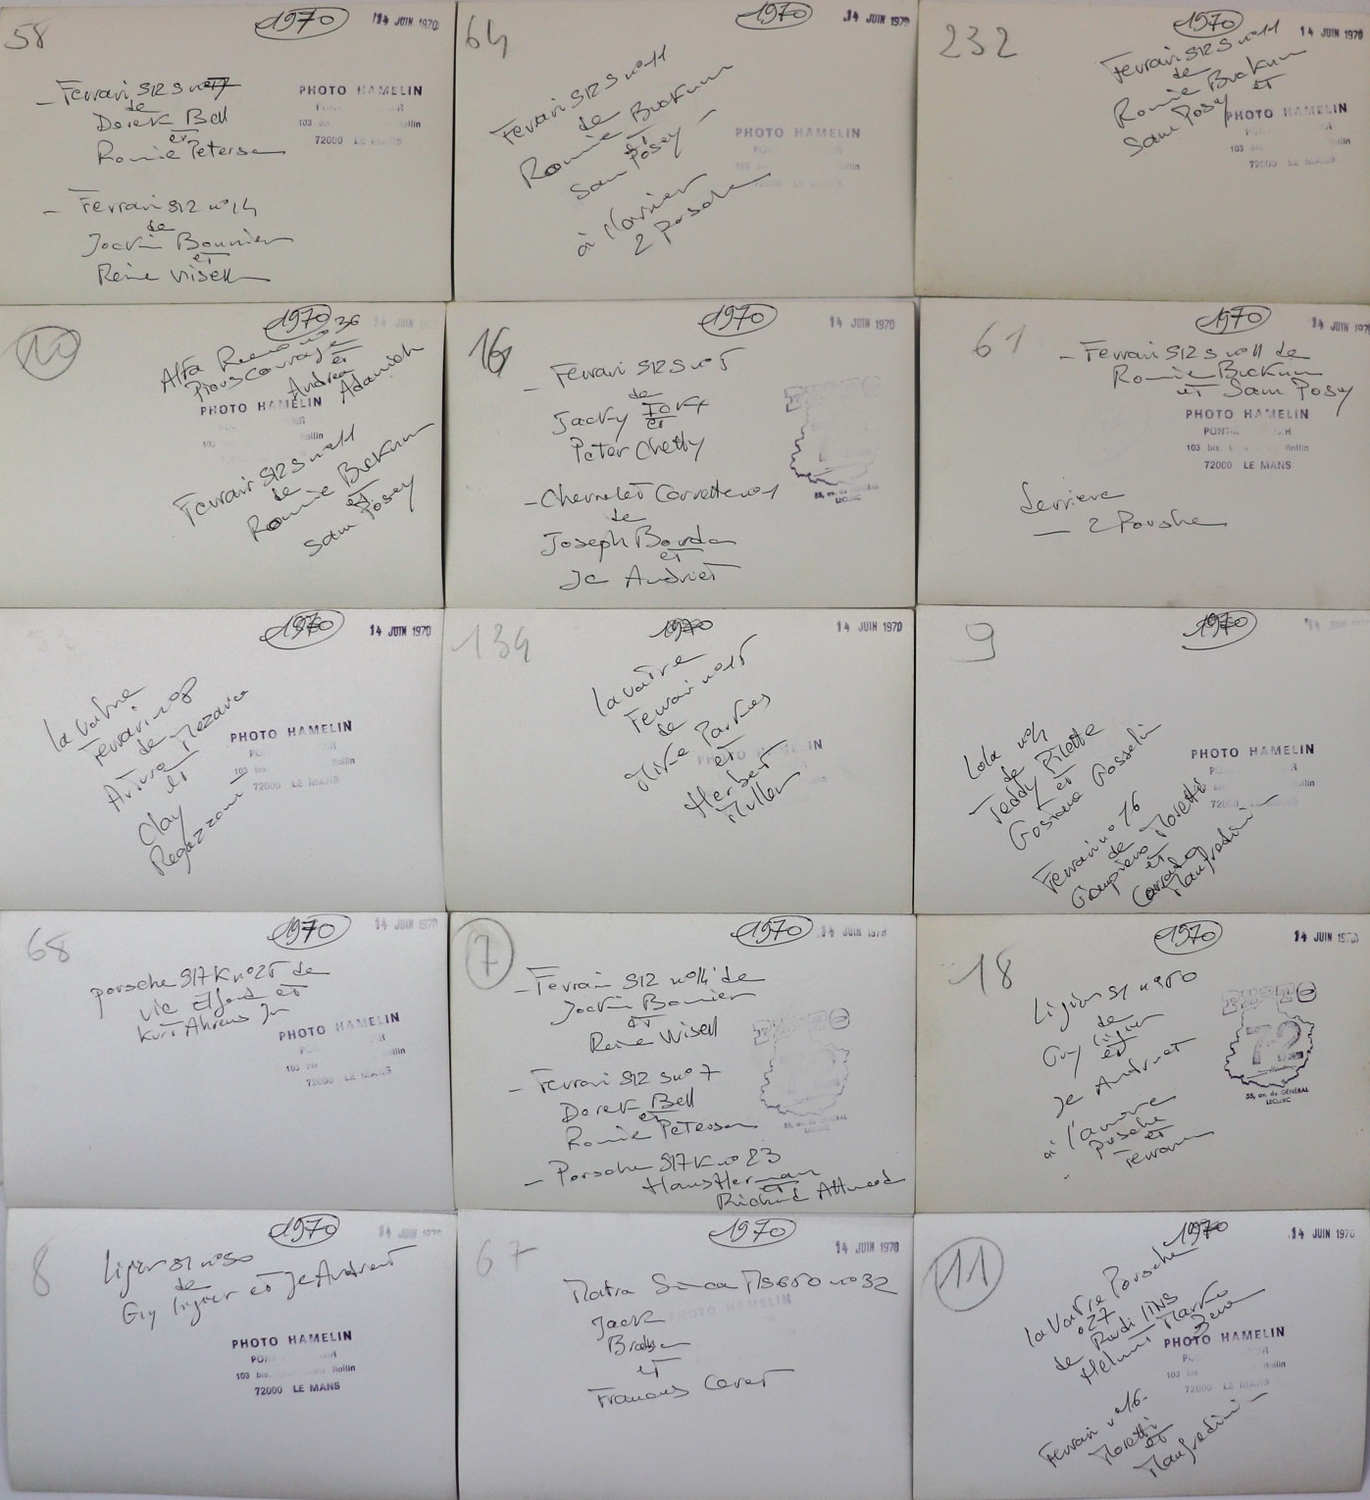 58
1970
14 JUIN 1970
- Ferrari 512 S n°7
de
Derek Bell
et
Ronnie Peterson
PHOTO HAMELIN
103 Rollin
72000 LE MANS
- Ferrari 512 n°14
de
Jockin Bonnier
et
Reine Wisell
64
1970
14 JUIN 1970
Ferrari 512 S n°11
de
Ronnie Bucknum
et
Sam Posey
à l'arrière
2 Porsche
PHOTO HAMELIN
232
1970
14 JUIN 1970
Ferrari 512 S n°11
de
Ronnie Bucknum
et
Sam Posey
PHOTO HAMELIN
103 bis Rollin
72000 LE MANS
10
1970
14 JUIN
Alfa Romeo n°36
Piers Courage
et
Andrea
Adamich
PHOTO HAMELIN
Rollin
Ferrari 512 S n°11
de
Ronnie Bucknum
et
Sam Posey
16
1970
14 JUIN 1970
- Ferrari 512 S n°5
de
Jacky
et
Peter Chetty
- Chevrolet Corvette n°1
de
Joseph Bourdon
et
JC Andruet
55, av. du GÉNÉRAL
LECLERC
61
1970
14 JUIN 1970
- Ferrari 512 S n°11 de
Ronnie Bucknum
et Sam Posey
PHOTO HAMELIN
103 bis, Rollin
72000 LE MANS
derriere
- 2 Porshe
1970
14 JUIN 1970
la voiture
Ferrari n°8
de
Arturo Mezario
et
Clay
Regazzoni
PHOTO HAMELIN
103 bis
72000 LE MANS
134
1970
14 JUIN 1970
la voiture
Ferrari n°15
de
Mike Parkes
et
Herbert
Muller
PHOTO HAMELIN
9
1970
Lola n°4
de
Teddy Pilette
et
Gustave Gosselin
Ferrari n°16
de
Giampiero Moretti
et
Corrado
Manfredini
PHOTO HAMELIN
72000 LE MANS
68
1970
14 JUIN 1970
porsche 917 K n°25 de
Vic Elford et
Kurt Ahrens Jr
PHOTO HAMELIN
103 Rollin
72000 LE MANS
7
1970
14 JUIN 1970
- Ferrari 512 n°14 de
Jockin Bonnier
et
Reine Wisell
- Ferrari 512 S n°7
Derek Bell
et
Ronnie Peterson
- Porsche 917 K n°23
Hans Herman
et
Richard Attwood
PHOTO
55, av. du GÉNÉRAL
LECLERC
18
1970
14 JUIN 1970
Ligier S1 n°50
de
Guy Ligier
et
Jc Andruet
à l'arrière
porsche
et
Ferrari
PHOTO
72
55, av. du GÉNÉRAL
LECLERC
8
1970
14 JUIN 1970
Ligier S1 n°50
de
Guy Ligier et Jc Andruet
PHOTO HAMELIN
103 bis, Rollin
72000 LE MANS
67
1970
14 JUIN 1970
Matra Simca MS650 n°32
Jack
Brabham
et
Francois Cevert
PHOTO HAMELIN
11
1970
14 JUIN 1970
la voitre Porsche
n°27
de Rudi LINS
Helmut Marko
PHOTO HAMELIN
103 bis Rollin
72000 LE MANS
Ferrari n°16
Moretti
et
Manfredini